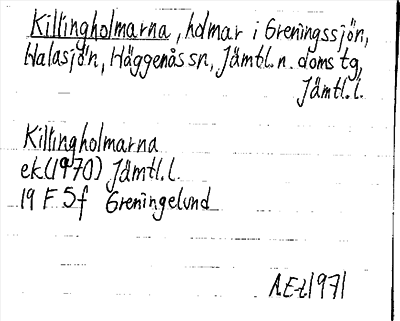 Killingholmarna, holmar i Greningssjön,
Halasjön, Häggenås sn, Jämtl. n. doms tg,
Jämtl. l.
Killingholmarna
ek. (1970) Jämtl. l.
19 F 5f Greningelund
A.Et 1971